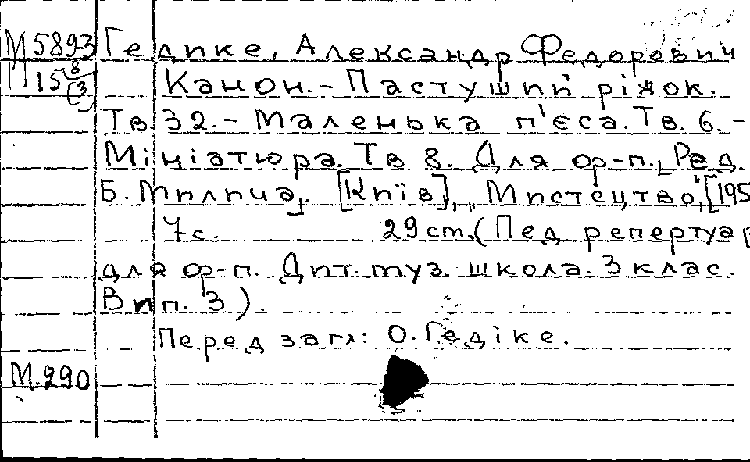 М5893 Гедике, Александр Федорович
15 8/(3) Канон.- Пастуший ріжок.
Тв. 32.- Маленька п'єса. Тв. 6.-
Мініатюра. Тв 8. Для ор-п. [Ред.
Б. Милича]. [Київ], "Мистецтво", [195
7с. 29 cm. (Пед репертуар
для ор-п. Дит. муз. школа. 3 клас.
Вип. 3).
Перед загл: О. Гедіке.
М.290